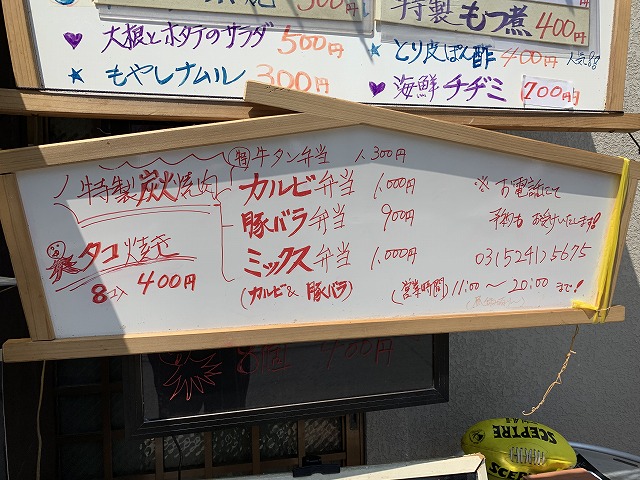 300円
特製 もつ煮 400円
大根とホタテのサラダ 500円
もやしナムル 300円
とり皮ぽん酢 400円 人気
海鮮チヂミ 700円
特製炭火焼肉
特 牛タン弁当 1,300円
カルビ弁当 1,000円
豚バラ弁当 900円
ミックス弁当 1,000円
(カルビ& 豚バラ)
タコ焼き
8コ入 400円
※ お電話にて
予約も お受けいたします!
03(5241)5675
(営業時間) 11:00〜20:00 まで!
8個 400円
SCEPTRE
SCEPTRE